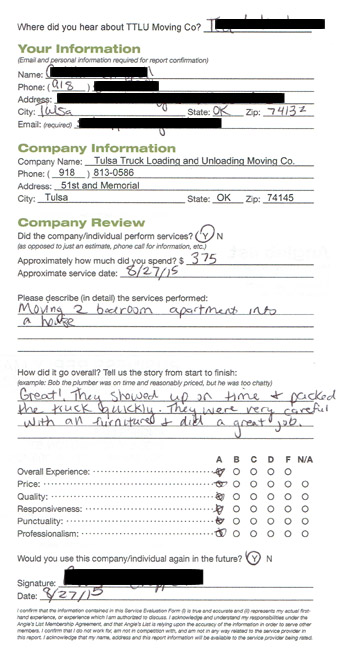 Where did you hear about TTLU Moving Co?
Your Information
(Email and personal information required for report confirmation)
Name:
Phone: (918 )
Address:
City: Tulsa State: OK Zip: 74132
Email: (required)
Company Information
Company Name: Tulsa Truck Loading and Unloading Moving Co.
Phone: ( 918 ) 813-0586
Address: 51st and Memorial
City: Tulsa State: OK Zip: 74145
Company Review
Did the company/individual perform services? Y N
(as opposed to just an estimate, phone call for information, etc.)
Approximately how much did you spend? $ 375
Approximate service date: 8/27/15
Please describe (in detail) the services performed:
Moving 2 bedroom apartment into
a house
How did it go overall? Tell us the story from start to finish:
(example: Bob the plumber was on time and reasonably priced, but he was too chatty)
Great! They showed up on time & packed
the truck quickly. They were very careful
with all furniture & did a great job.
A B C D F N/A
Overall Experience:
Price:
Quality:
Responsiveness:
Punctuality:
Professionalism:
Would you use this company/individual again in the future? Y N
Signature:
Date: 8/27/15
I confirm that the information contained in this Service Evaluation Form (i) is true and accurate and (ii) represents my actual first-
hand experience, or experience which I am authorized to discuss. I acknowledge and understand my responsibilities under the
Angie's List Membership Agreement, and that Angie's List is relying upon the accuracy of the information in order to serve other
members. I confirm that I do not work for, am not in competition with, and am not in any way related to the service provider in
this report. I acknowledge that my name, address and this report information will be available to the service provider being rated.